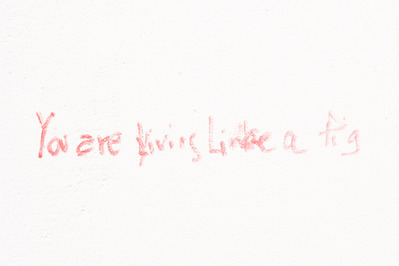 You are living Linke a Pig